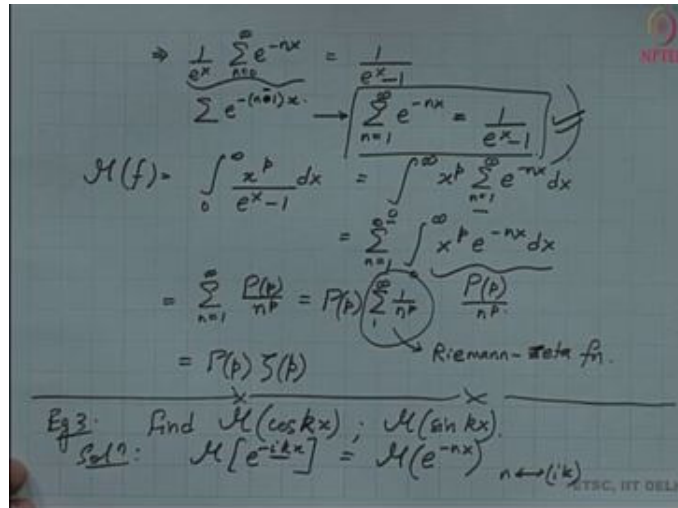 NPTEL
⇒ 1/e^x ∑_{n=0}^∞ e^{-nx} = 1/(e^x-1)
∑ e^{-(n+1)x} → ∑_{n=1}^∞ e^{-nx} = 1/(e^x-1)
M(f) = ∫_0^∞ x^p/(e^x-1) dx = ∫_0^∞ x^p ∑_{n=1}^∞ e^{-nx} dx
= ∑_{n=1}^∞ ∫_0^∞ x^p e^{-nx} dx
= ∑_{n=1}^∞ Γ(p)/n^p = Γ(p) ∑_1^∞ 1/n^p Γ(p)/n^p.
→ Riemann-zeta fn.
= Γ(p) ζ(p)
Eg 3: find M(cos kx) ; M(sin kx).
Solⁿ: M[e^{-ikx}] = M(e^{-nx}) n↔(ik)
ETSC, IIT DELHI